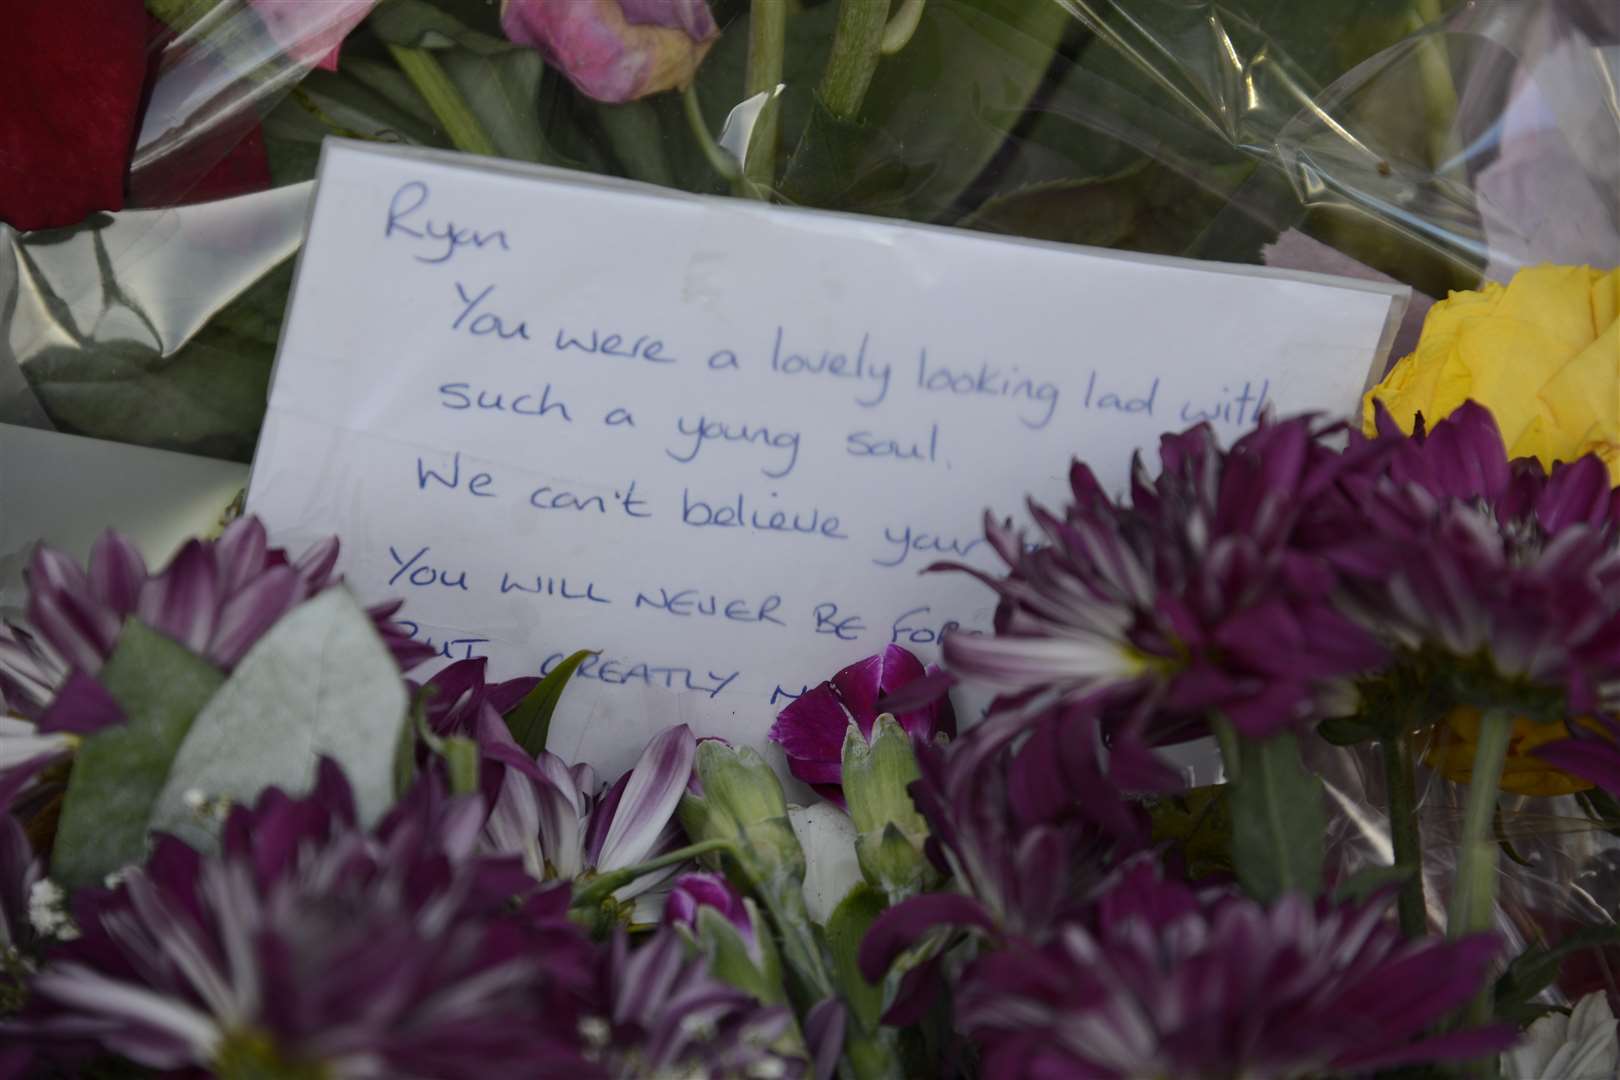 Ryan
You were a lovely looking lad with
such a young soul.
We can't believe your
YOU WILL NEVER BE
BUT GREATLY